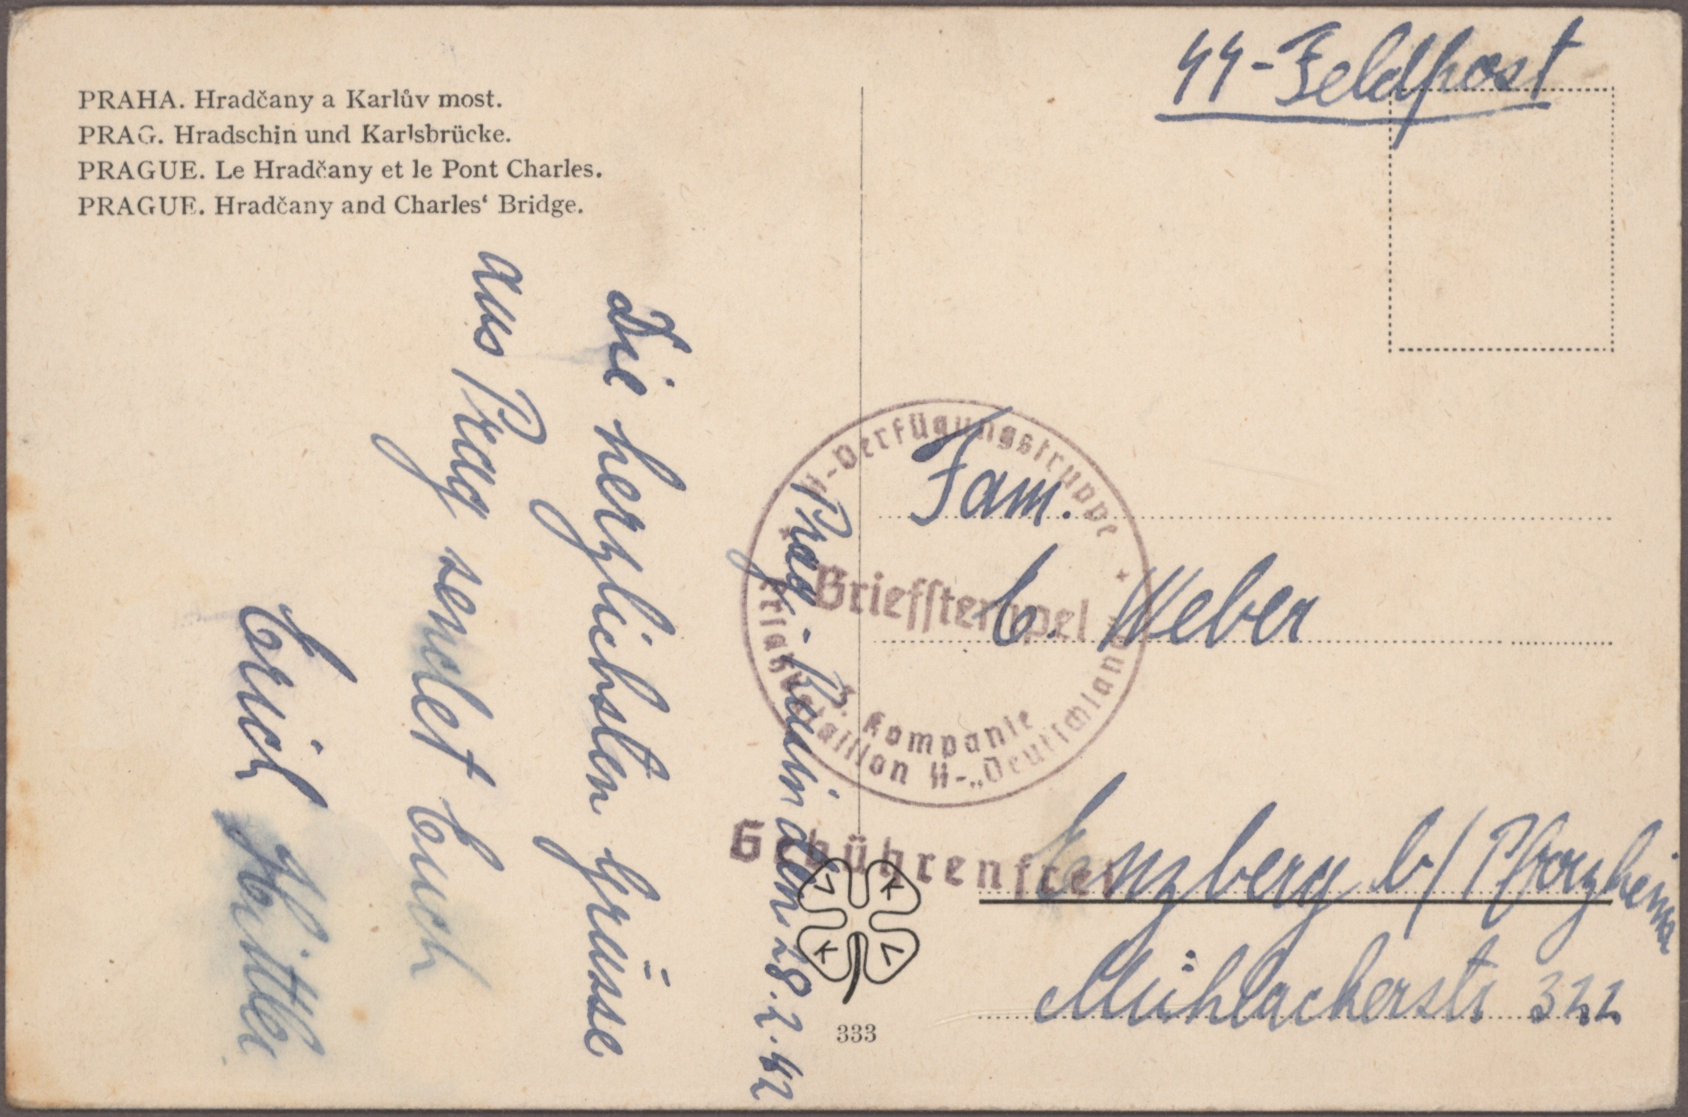 PRAHA. Hradčany a Karlův most.
PRAG. Hradschin und Karlsbrücke.
PRAGUE. Le Hradčany et le Pont Charles.
PRAGUE. Hradčany and Charles‘ Bridge.
ϟϟ-Feldpost
Prag, den 28.2.42
Die herzlichsten Grüsse
aus Prag sendet Euch
Erich
ϟϟ-Verfügungsstruppe
Briefstempel
3. Kompanie
ϟϟ-„Deutschland
Gebührenfrei
Fam.
E. Weber
Enzberg b/Pforzheim
Mühlackerstr 322
333